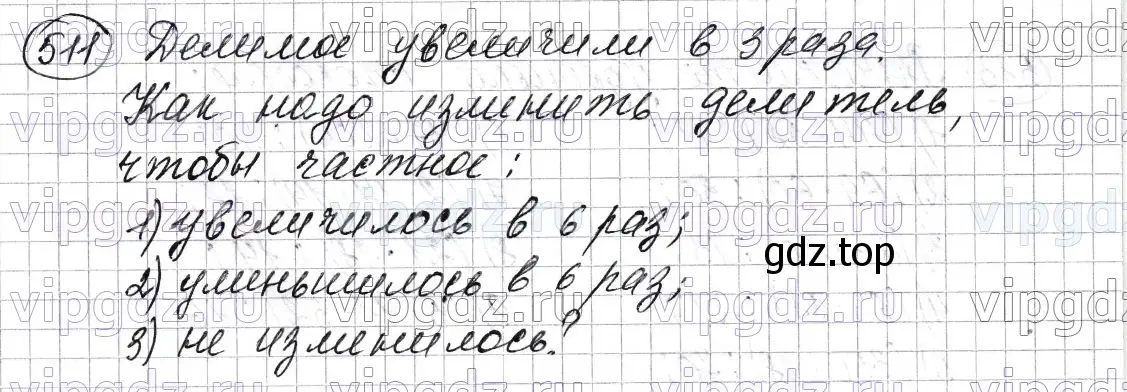 511 Делимое увеличили в 3 раза.
Как надо изменить делитель,
чтобы частное:
1) увеличилось в 6 раз;
2) уменьшилось в 6 раз;
3) не изменилось?
gdz.top
vipgdz.ru